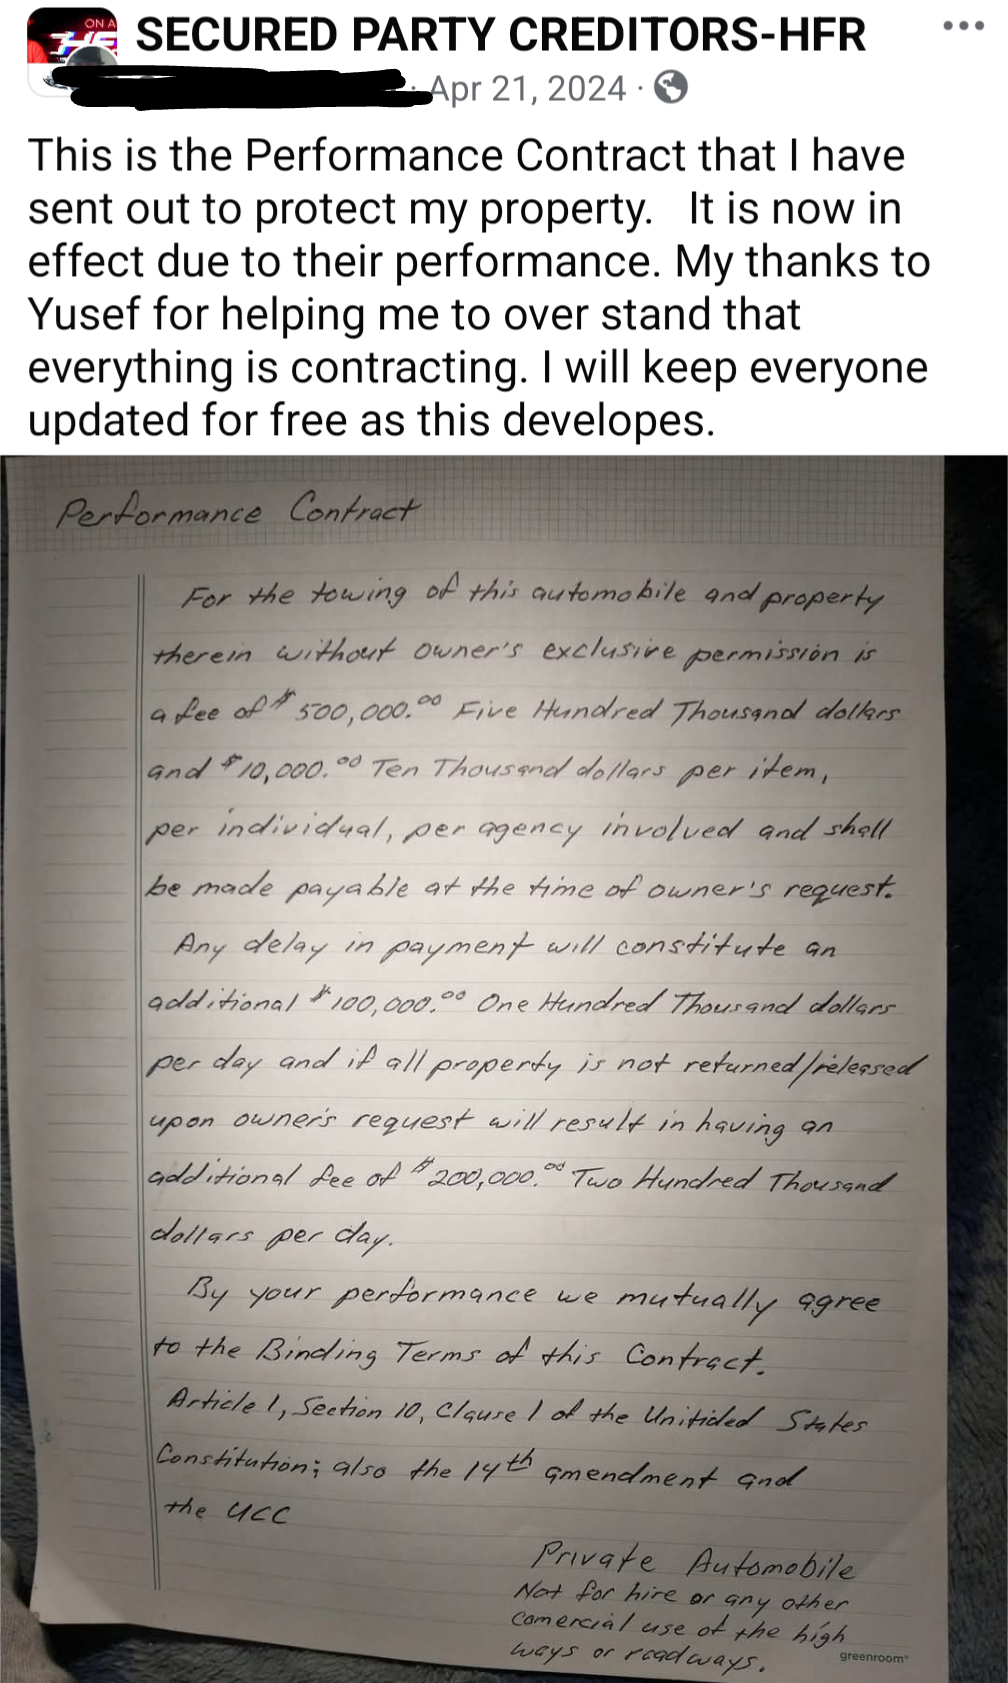 ON A
SECURED PARTY CREDITORS-HFR
Apr 21, 2024 ·
This is the Performance Contract that I have
sent out to protect my property. It is now in
effect due to their performance. My thanks to
Yusef for helping me to over stand that
everything is contracting. I will keep everyone
updated for free as this developes.
Performance Contract
For the towing of this automobile and property
therein without owner's exclusive permission is
a fee of $500,000.00 Five Hundred Thousand dollars
and $10,000.00 Ten Thousand dollars per item,
per individual, per agency involved and shall
be made payable at the time of owner's request.
Any delay in payment will constitute an
additional $100,000.00 One Hundred Thousand dollars
per day and if all property is not returned/released
upon owner's request will result in having an
additional fee of $200,000.00 Two Hundred Thousand
dollars per day.
By your performance we mutually agree
to the Binding Terms of this Contract.
Article 1, Section 10, Clause 1 of the Unitided States
Constitution; also the 14th amendment and
the UCC
Private Automobile
Not for hire or any other
comercial use of the high
ways or roadways.
greenroom